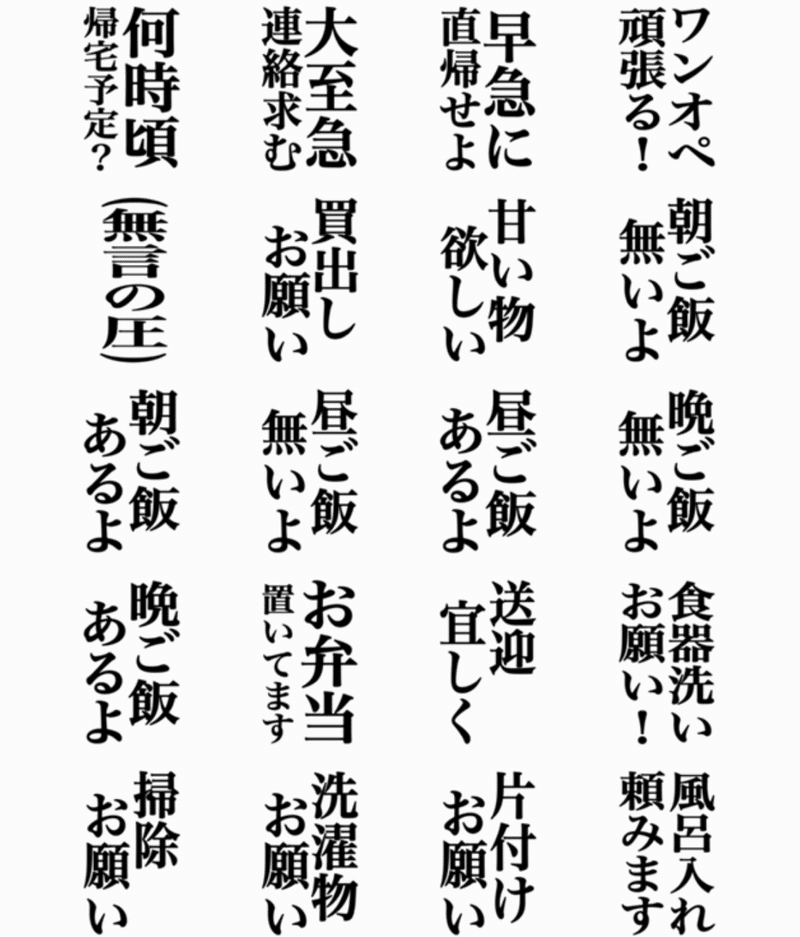 何時頃
帰宅予定?
大至急
連絡求む
早急に
直帰せよ
ワンオペ
頑張る!
(無言の圧)
買出し
お願い
甘い物
欲しい
朝ご飯
無いよ
朝ご飯
あるよ
昼ご飯
無いよ
昼ご飯
あるよ
晩ご飯
無いよ
晩ご飯
あるよ
お弁当
置いてます
送迎
宜しく
食器洗い
お願い!
掃除
お願い
洗濯物
お願い
片付け
お願い
風呂入れ
頼みます